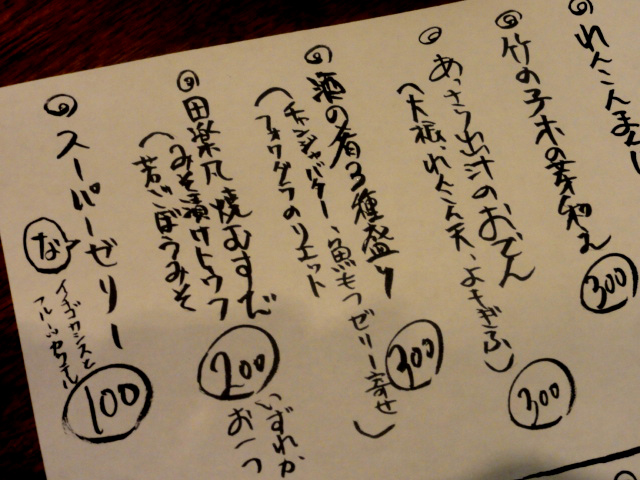 れんこんまんじ
竹の子木の芽和え
300
あっさり出汁のおでん
(大根、れんこん天、よもぎふ)
300
酒の肴3種盛り
(チャンジャバター、魚もつゼリー寄せ
フォワグラのリエット)
300
田楽風焼むすび
みそ漬けトウフ
(若ごぼうみそ
200
いずれか
お一つ
スーパーゼリー
な
イチゴカシスと
フルーツカクテル
100